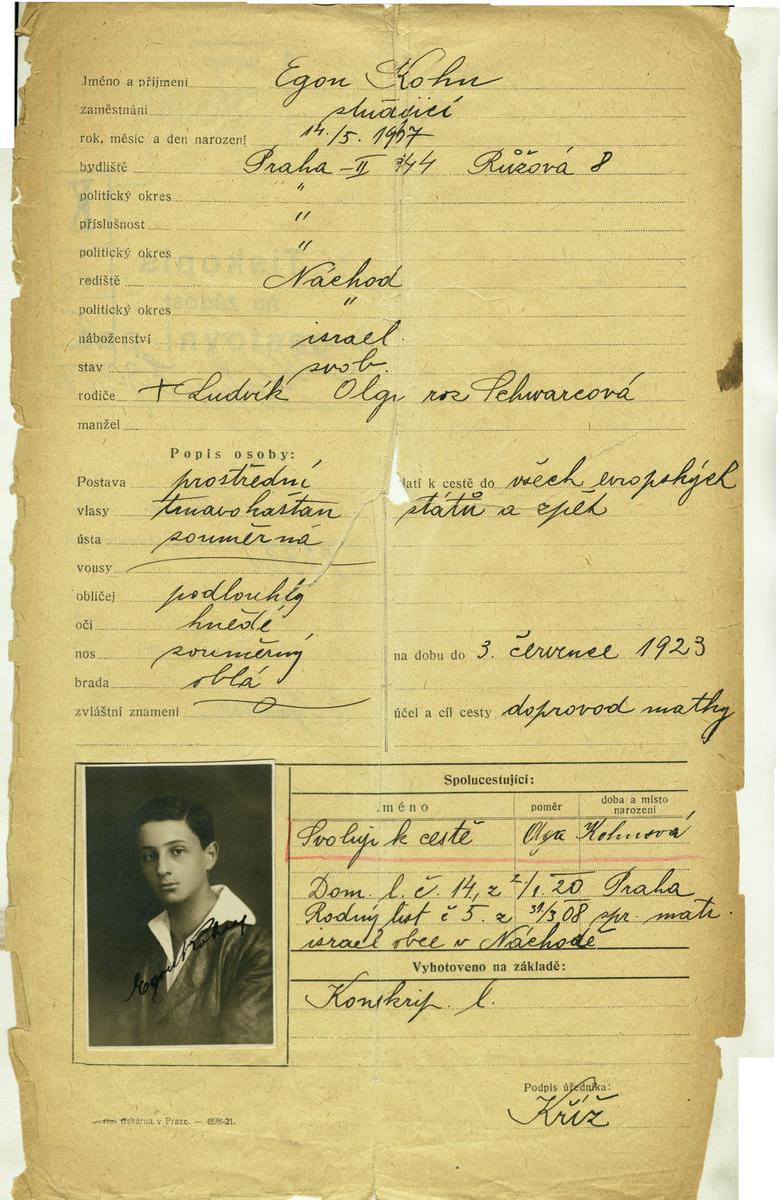 Jméno a příjmení Egon Kohn
zaměstnání studující
rok, měsíc a den narození 14./5. 1907
bydliště Praha – II 744 Růžová 8
politický okres "
příslušnost "
politický okres "
rodiště Náchod
politický okres "
náboženství israel.
stav svob.
rodiče + Ludvík Olga roz Schwarcová
manžel
Popis osoby:
Postava prostřední
latí k cestě do všech evropských
vlasy tmavokaštan
států a zpět
ústa souměrná
vousy
obličej podlouhlý
oči hnědé
nos souměrný
na dobu do 3. července 1923
brada oblá
zvláštní znamení
účel a cíl cesty doprovod matky
Spolucestující:
jméno poměr doba a místo narození
Svoluji k cestě Olga Kohnová
Dom. l. č. 14, z 2/1. 20 Praha
Rodný list č 5. z 31/3 08 spr. matr.
israel obce v Náchodě
Vyhotoveno na základě:
Konskrip. l.
Egon Kohn
Podpis úředníka:
Kříž
tiskárna v Praze. —